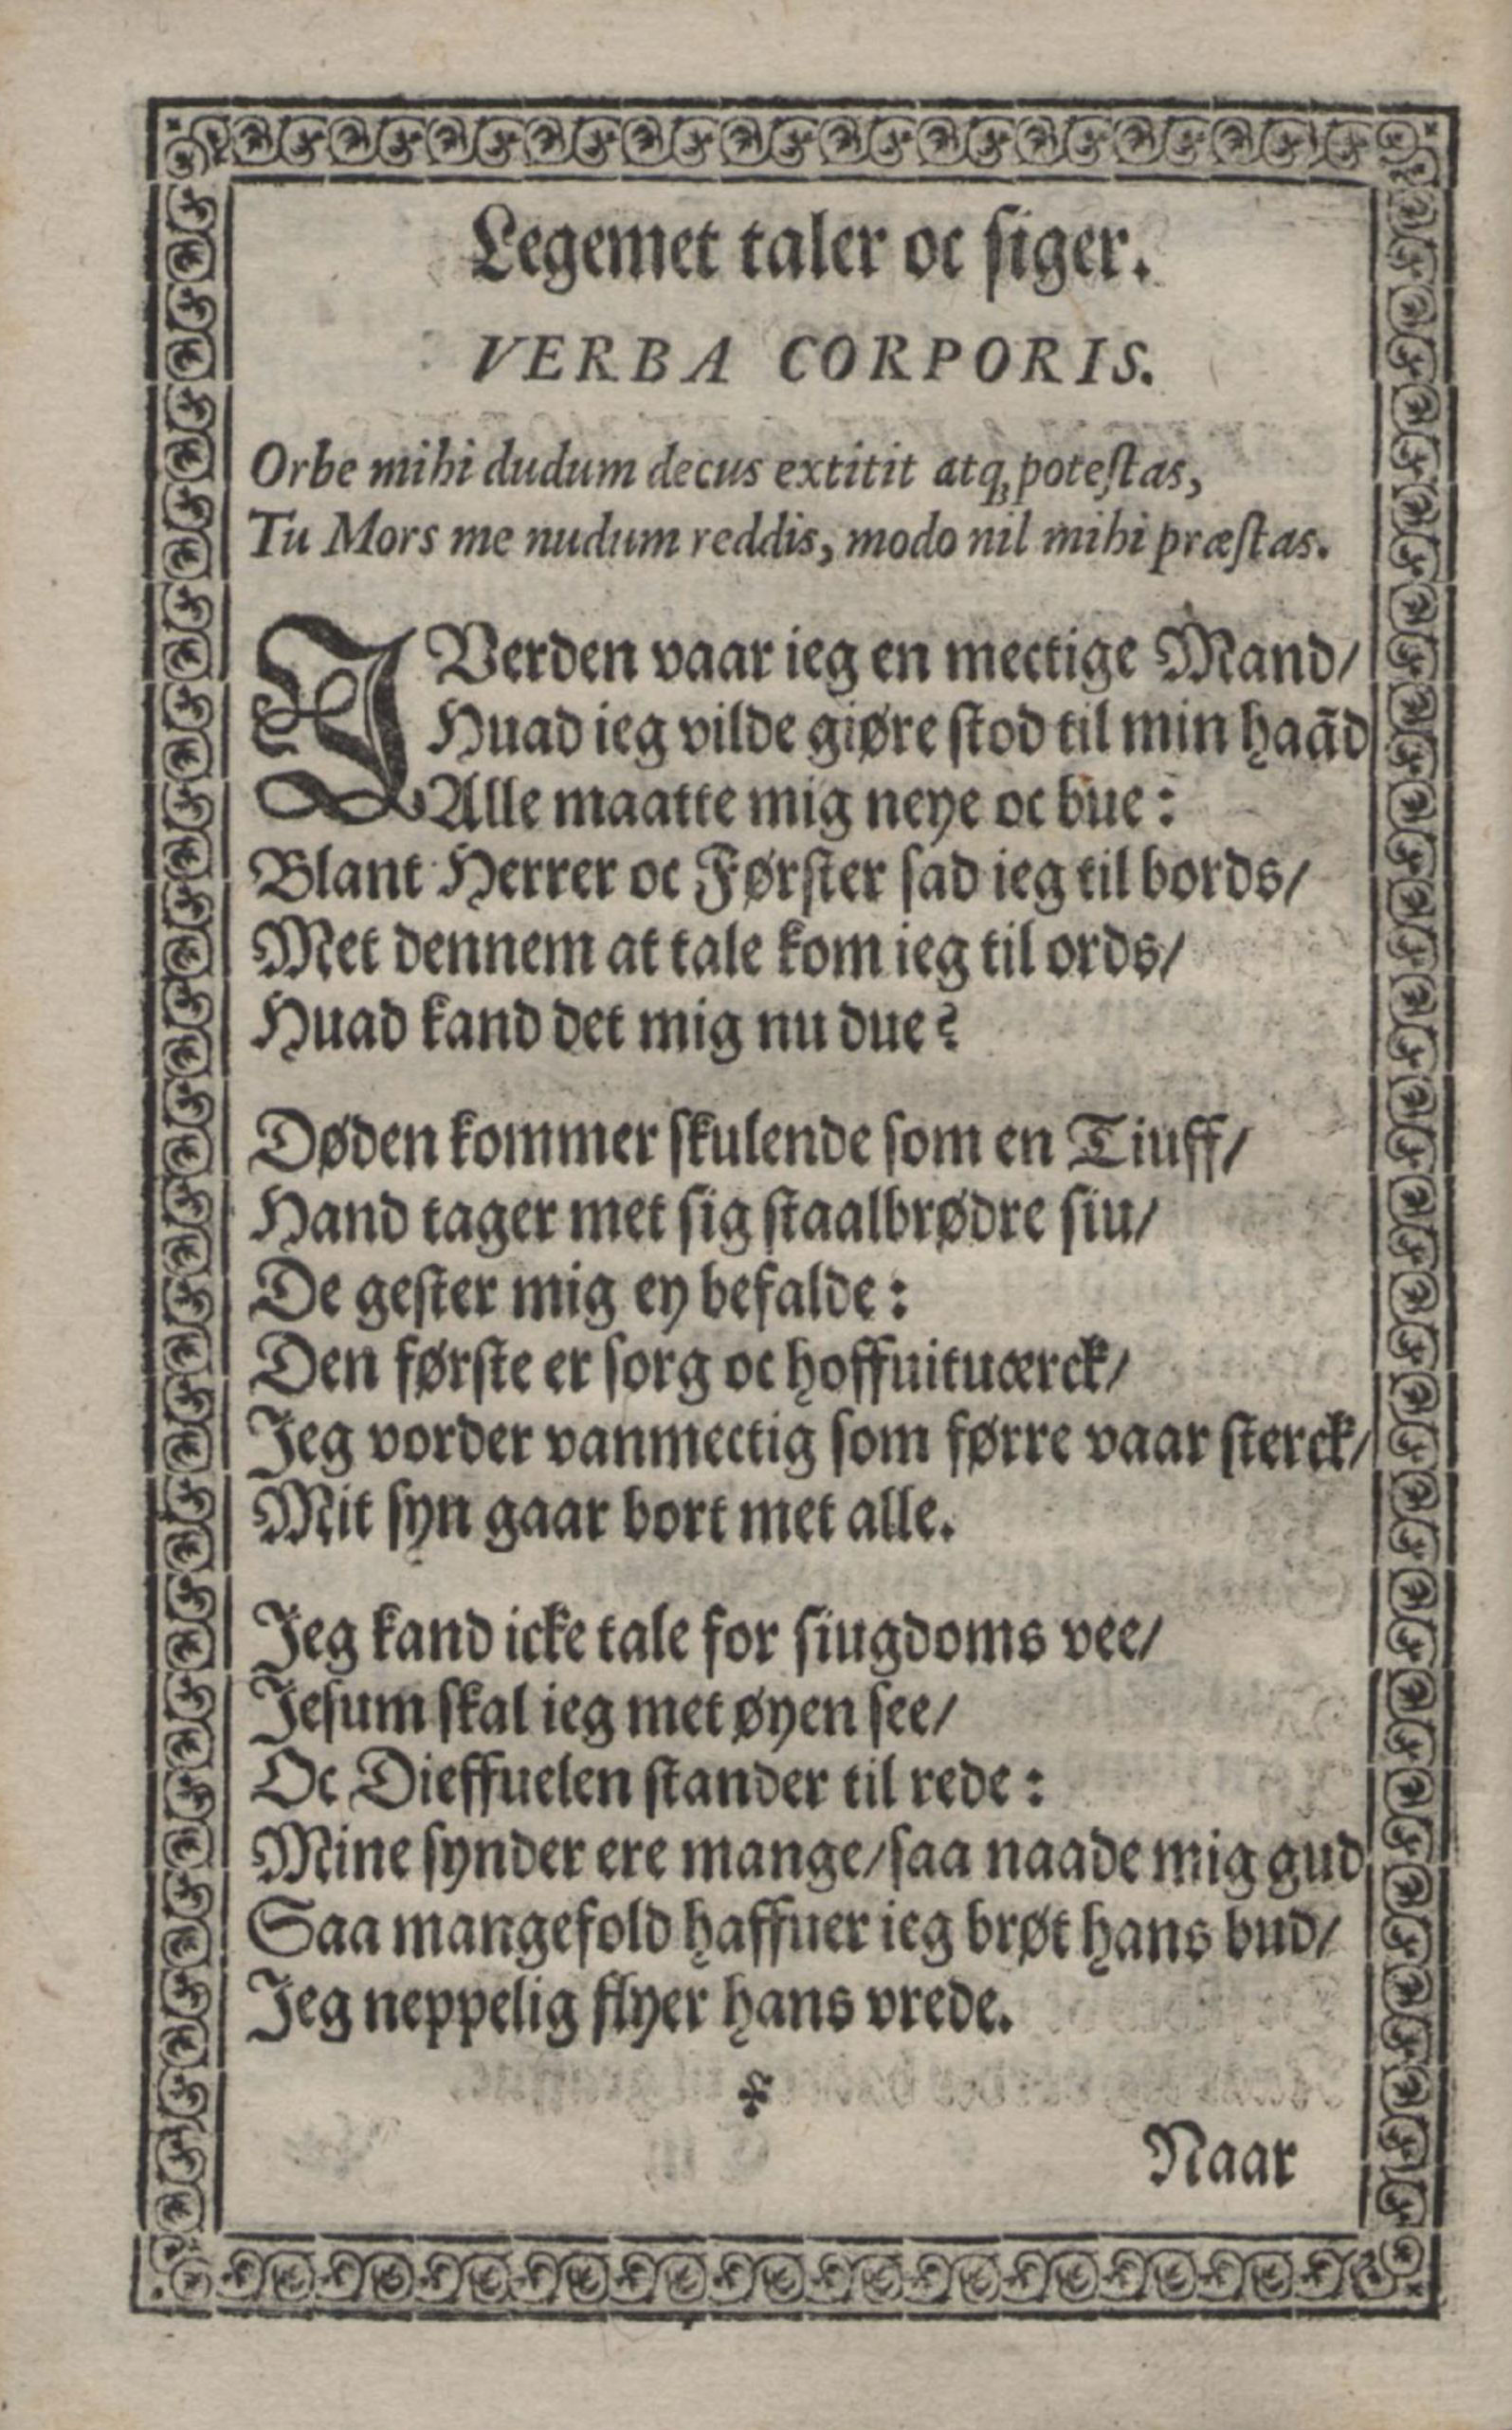 Legemet taler oc siger.
VERBA CORPORIS.
Orbe mihi dudum decus extitit atq; potestas,
Tu Mors me nudum reddis, modo nil mihi præstas.
I Verden vaar ieg en mectige Mand/
Huad ieg vilde giøre stod til min haãd
Alle maatte mig neye oc bue:
Blant Herrer oc Første​r sad ieg til bords/
Met dennem at tale kom ieg til ords/
Huad kand det mig nu due?
Døden kommer skulende som en Tiuff/
Hand tager met sig staalbrødre siu/
De gester mig ey befalde:
Den første er sorg oc hoffuituærck/
Jeg vorder vanmectig som førre vaar sterck/
Mit syn gaar bort met alle.
Jeg kand icke tale for siugdoms vee/
Jesum skal ieg met øyen see/
Oc Dieffuelen stander til rede:
Mine synder ere mange/saa naade mig gud
Saa mangefold haffuer ieg brøt hans bud/
Jeg neppelig flyer hans vrede.
Naar